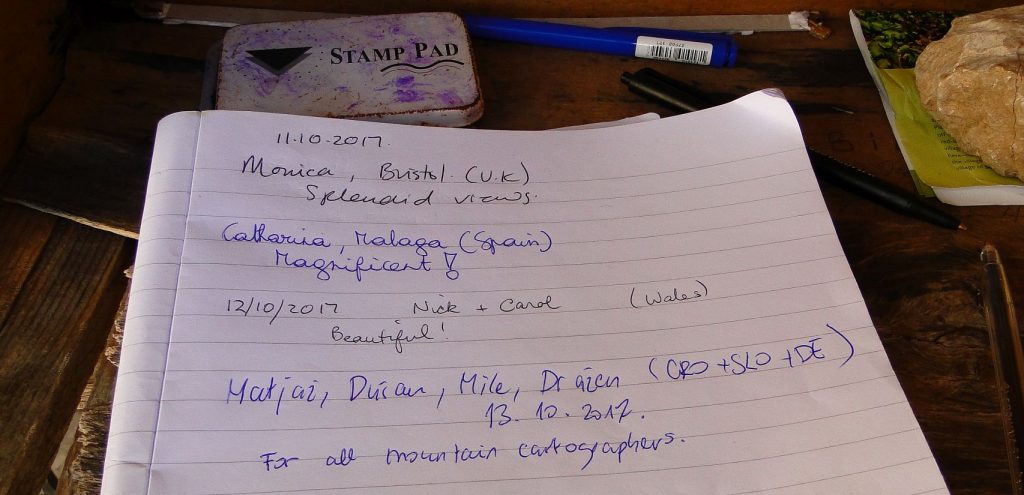 STAMP PAD
11.10.2017.
Monica, Bristol. (U.K)
Splendid views.
Catharina, Malaga (Spain)
Magnificent!
12/10/2017 Nick + Carol (Wales)
Beautiful!
Matjaž, Dušan, Mile, Dražen (CRO + SLO + DE)
13.10.2017.
For all mountain cartographers.